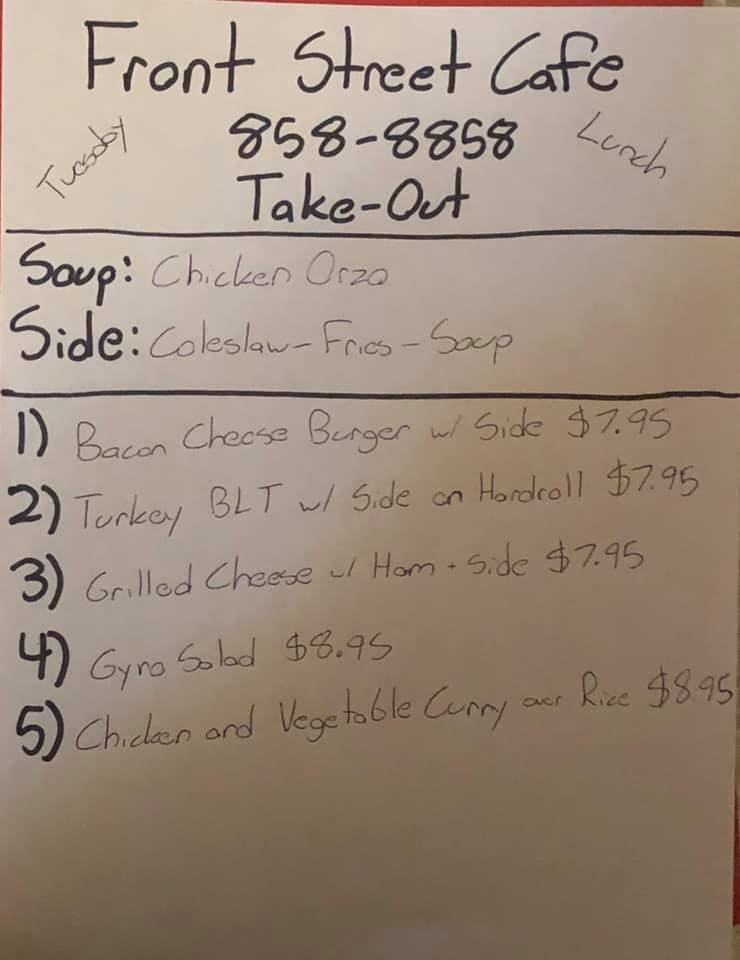 Front Street Cafe
858-8858
Tuesday
Lunch
Take-Out
Soup: Chicken Orzo
Side: Coleslaw-Fries-Soup
1) Bacon Cheese Burger w/ Side $7.95
2) Turkey BLT w/ Side on Hardroll $7.95
3) Grilled Cheese w/ Ham + Side $7.95
4) Gyro Salad $8.95
5) Chicken and Vegetable Curry over Rice $8.95